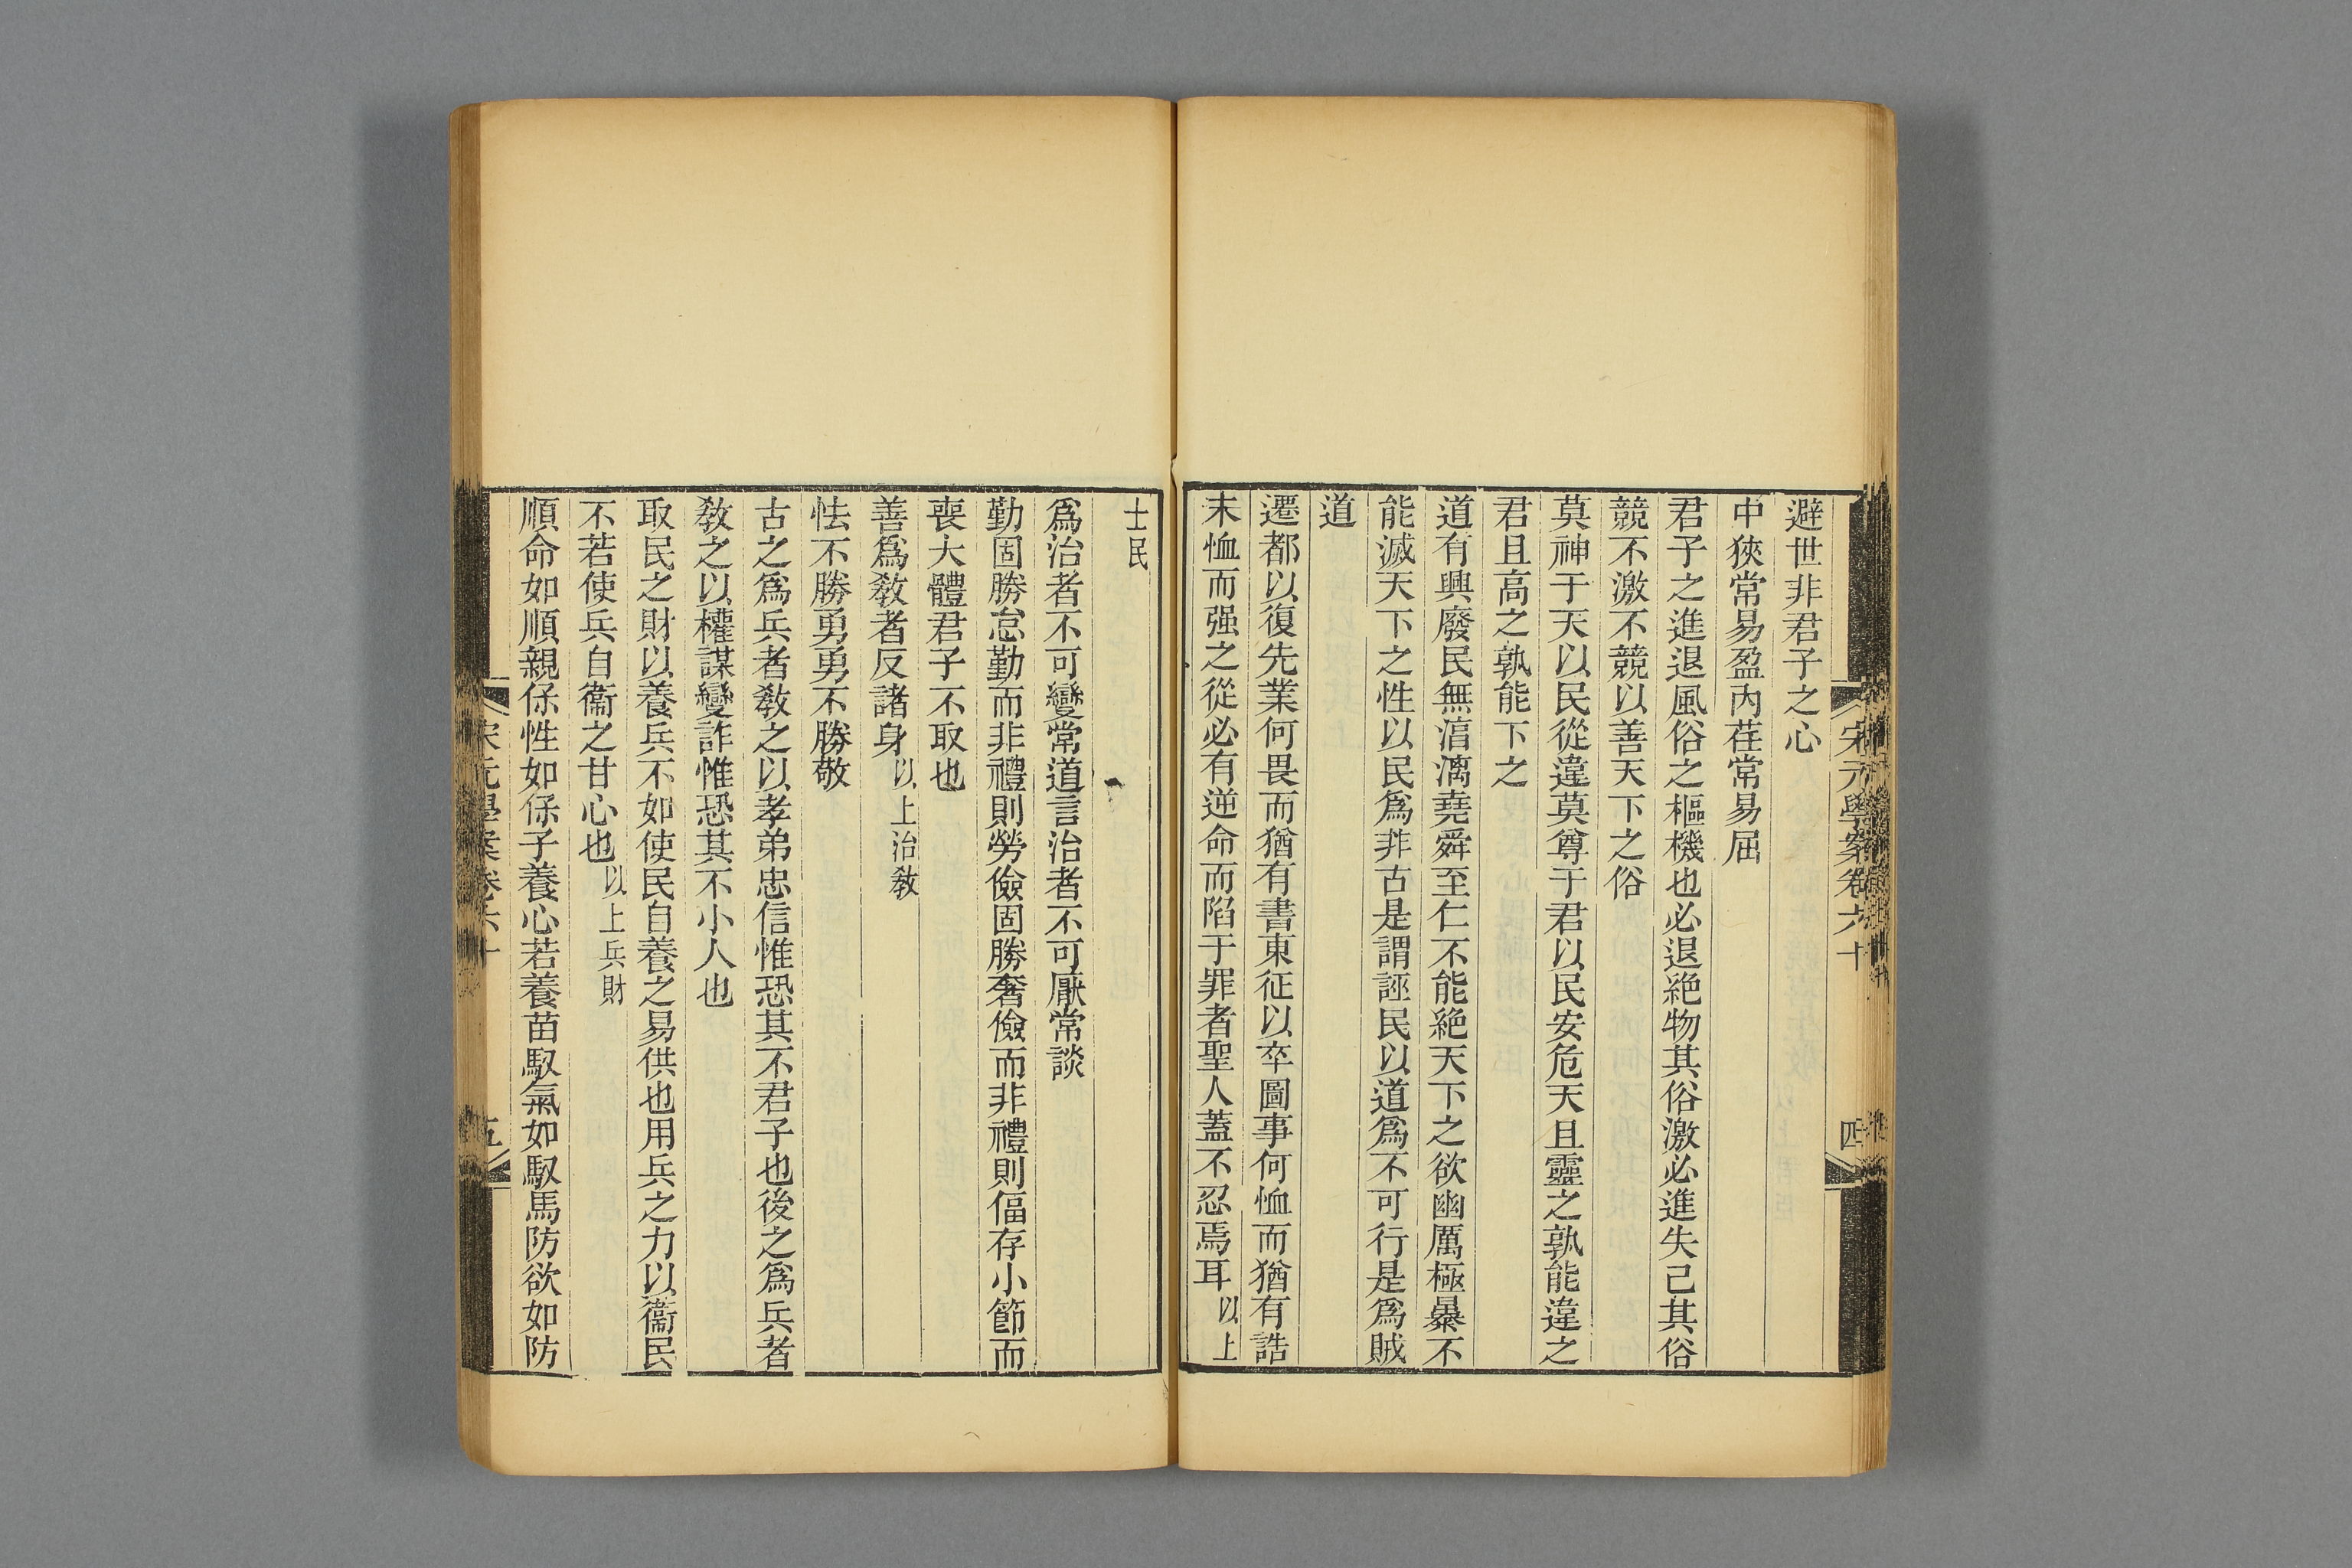 宋元學案卷六十
四
避世非君子之心
中狹常易盈內荏常易屈
君子之進退風俗之樞機也必退絶物其俗激必進失己其俗
競不激不競以善天下之俗
莫神于天以民從違莫尊于君以民安危天且靈之孰能違之
君且高之孰能下之
道有興廢民無湻漓堯舜至仁不能絶天下之欲幽厲極暴不
能滅天下之性以民爲非古是謂誣民以道爲不可行是爲賊
道
遷都以復先業何畏而猶有書東征以卒圖事何恤而猶有誥
未恤而强之從必有逆命而陷于罪者聖人蓋不忍焉耳以上
士民
爲治者不可變常道言治者不可厭常談
勤固勝怠勤而非禮則勞儉固勝奢儉而非禮則偪存小節而
喪大體君子不取也
善爲敎者反諸身以上治敎
怯不勝勇勇不勝敬
古之爲兵者敎之以孝弟忠信惟恐其不君子也後之爲兵者
敎之以權謀變詐惟恐其不小人也
取民之財以養兵不如使民自養之易供也用兵之力以衞民
不若使兵自衞之甘心也以上兵財
順命如順親保性如保子養心若養苗馭氣如馭馬防欲如防
宋元學案卷六十
五